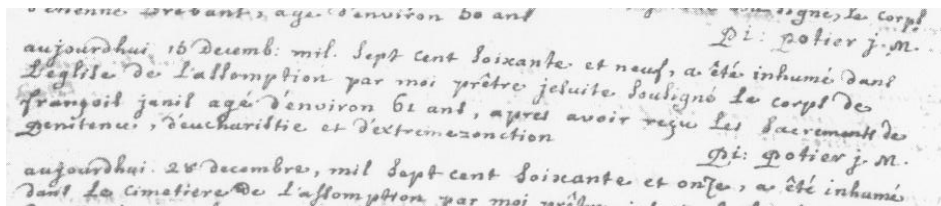 d'etienne Drevant, agé d'environ 50 ans
le corps
pi: potier j. M.
aujourdhui 15 Decemb: mil. sept cent soixante et neuf, a été inhumé dans
L'église de L'assomption par moi prêtre jesuite souligné Le corps de
françois janis agé d'environ 61 ans, apres avoir reçu Les sacrements de
penitence, d'eucharistie et d'extremezonction
pi: potier j. M.
aujourdhui 28 decembre, mil sept cent soixante et onze, a été inhumé
dans Le Cimetiere de L'assomption par moi prêtre